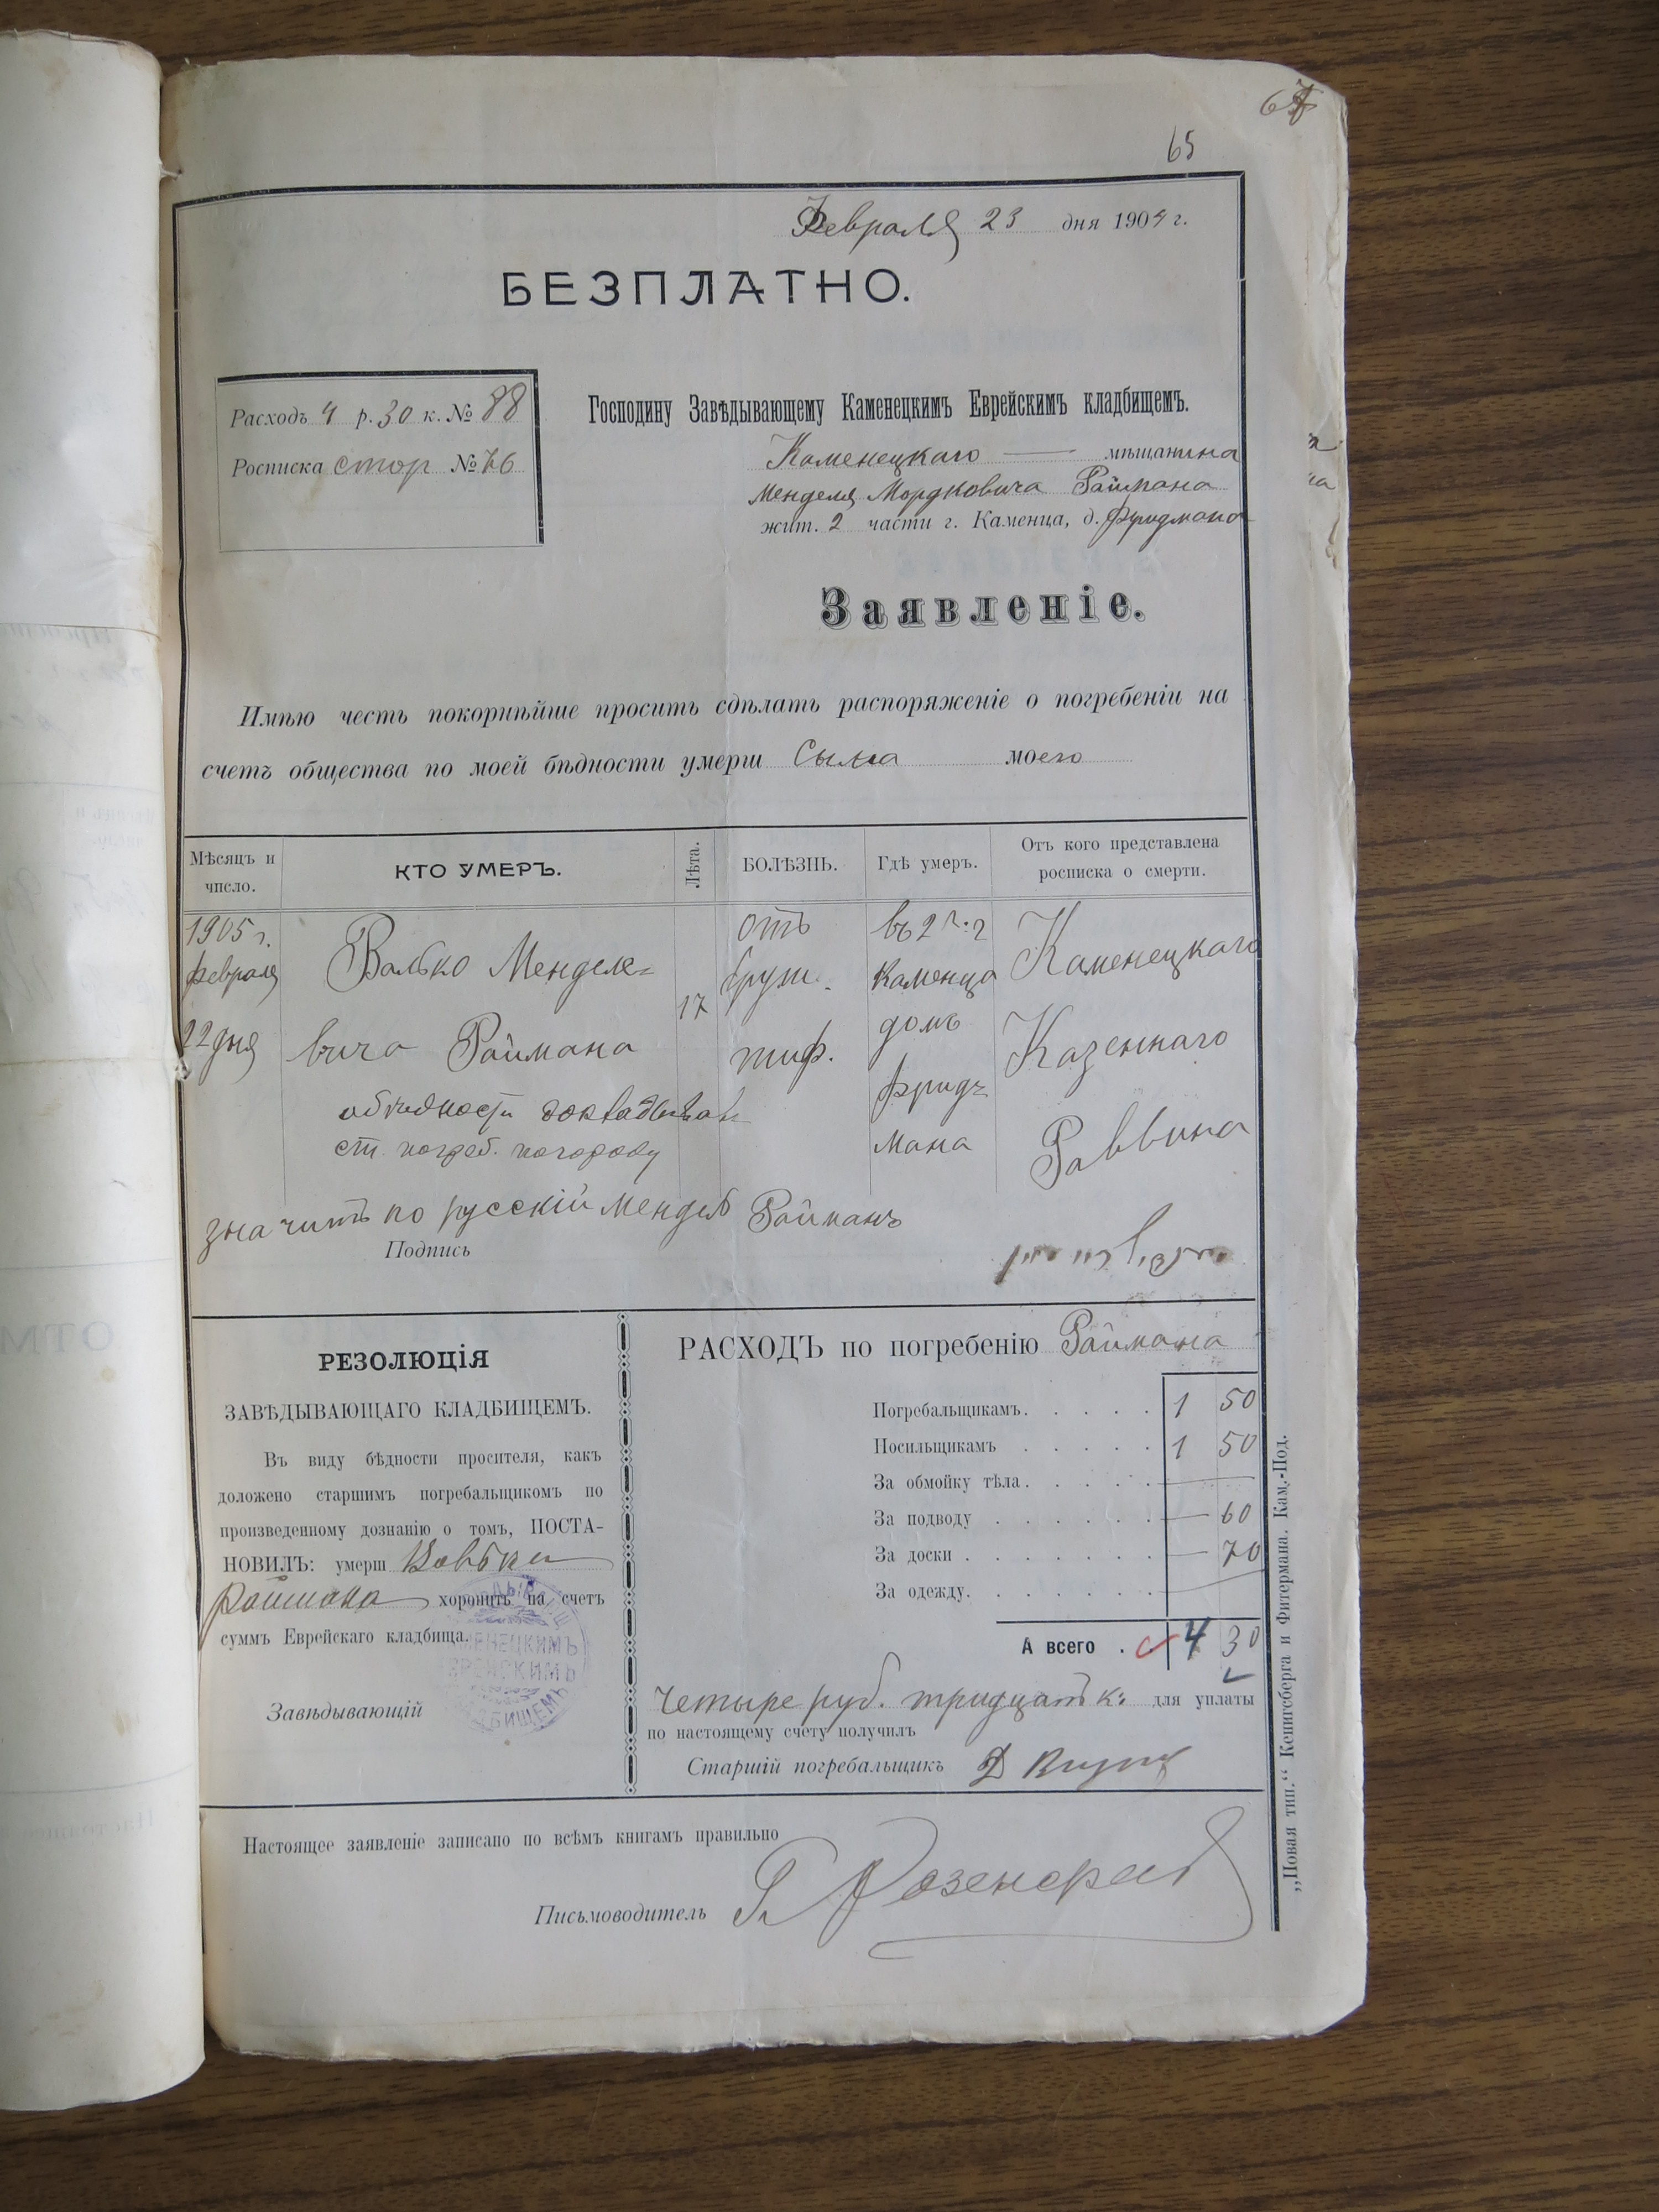 65
Февраля 23 дня 1905 г.
БЕЗПЛАТНО.
Расходъ 4 р. 30 к. № 88
Росписка стор № 76
Господину Завѣдывающему Каменецкимъ Еврейскимъ кладбищемъ.
Каменецкаго — мѣщанина
Менделя Мордковича Раймана
жит. 2 части г. Каменца, д. Фридмана
Заявленіе.
Имѣю честь покорнѣйше просить сдѣлать распоряженіе о погребеніи на
счетъ общества по моей бѣдности умерш Сына моего
Мѣсяцъ и число.
КТО УМЕРЪ.
Лѣта.
БОЛѢЗНЬ.
Гдѣ умеръ.
Отъ кого представлена росписка о смерти.
1905 г. Февраля 22 дня
Волько Менделе=
вича Раймана
17
отъ
брюш.
тиф.
въ 2 ч. г
Каменца
домъ
Фрид=
мана
Каменецкаго
Казеннаго
Раввина
обѣдности докладывае
ст. погреб.
значитъ по русскій Мендель Райманъ
Подпись
РЕЗОЛЮЦІЯ
ЗАВѢДЫВАЮЩАГО КЛАДБИЩЕМЪ.
Въ виду бѣдности просителя, какъ
доложено старшимъ погребальщикомъ по
произведенному дознанію о томъ, ПОСТА-
НОВИЛЪ: умерш Вольки
Раймана хоронить на счетъ
суммъ Еврейскаго кладбища.
Завѣдывающій
РАСХОДЪ по погребенію Раймана
Погребальщикамъ. . . . . 1 50
Носильщикамъ . . . . . 1 50
За обмойку тѣла. . . . . —
За подводу . . . . . . — 60
За доски . . . . . . . — 70
За одежду. . . . . . . —
А всего . 4 30
Четыре руб. тридцать к: для уплаты
по настоящему счету получилъ
Старшій погребальщикъ
Настоящее заявленіе записано по всѣмъ книгамъ правильно
Письмоводитель
„Новая тип.“ Кенигсберга и Фитермана. Кам.-Под.